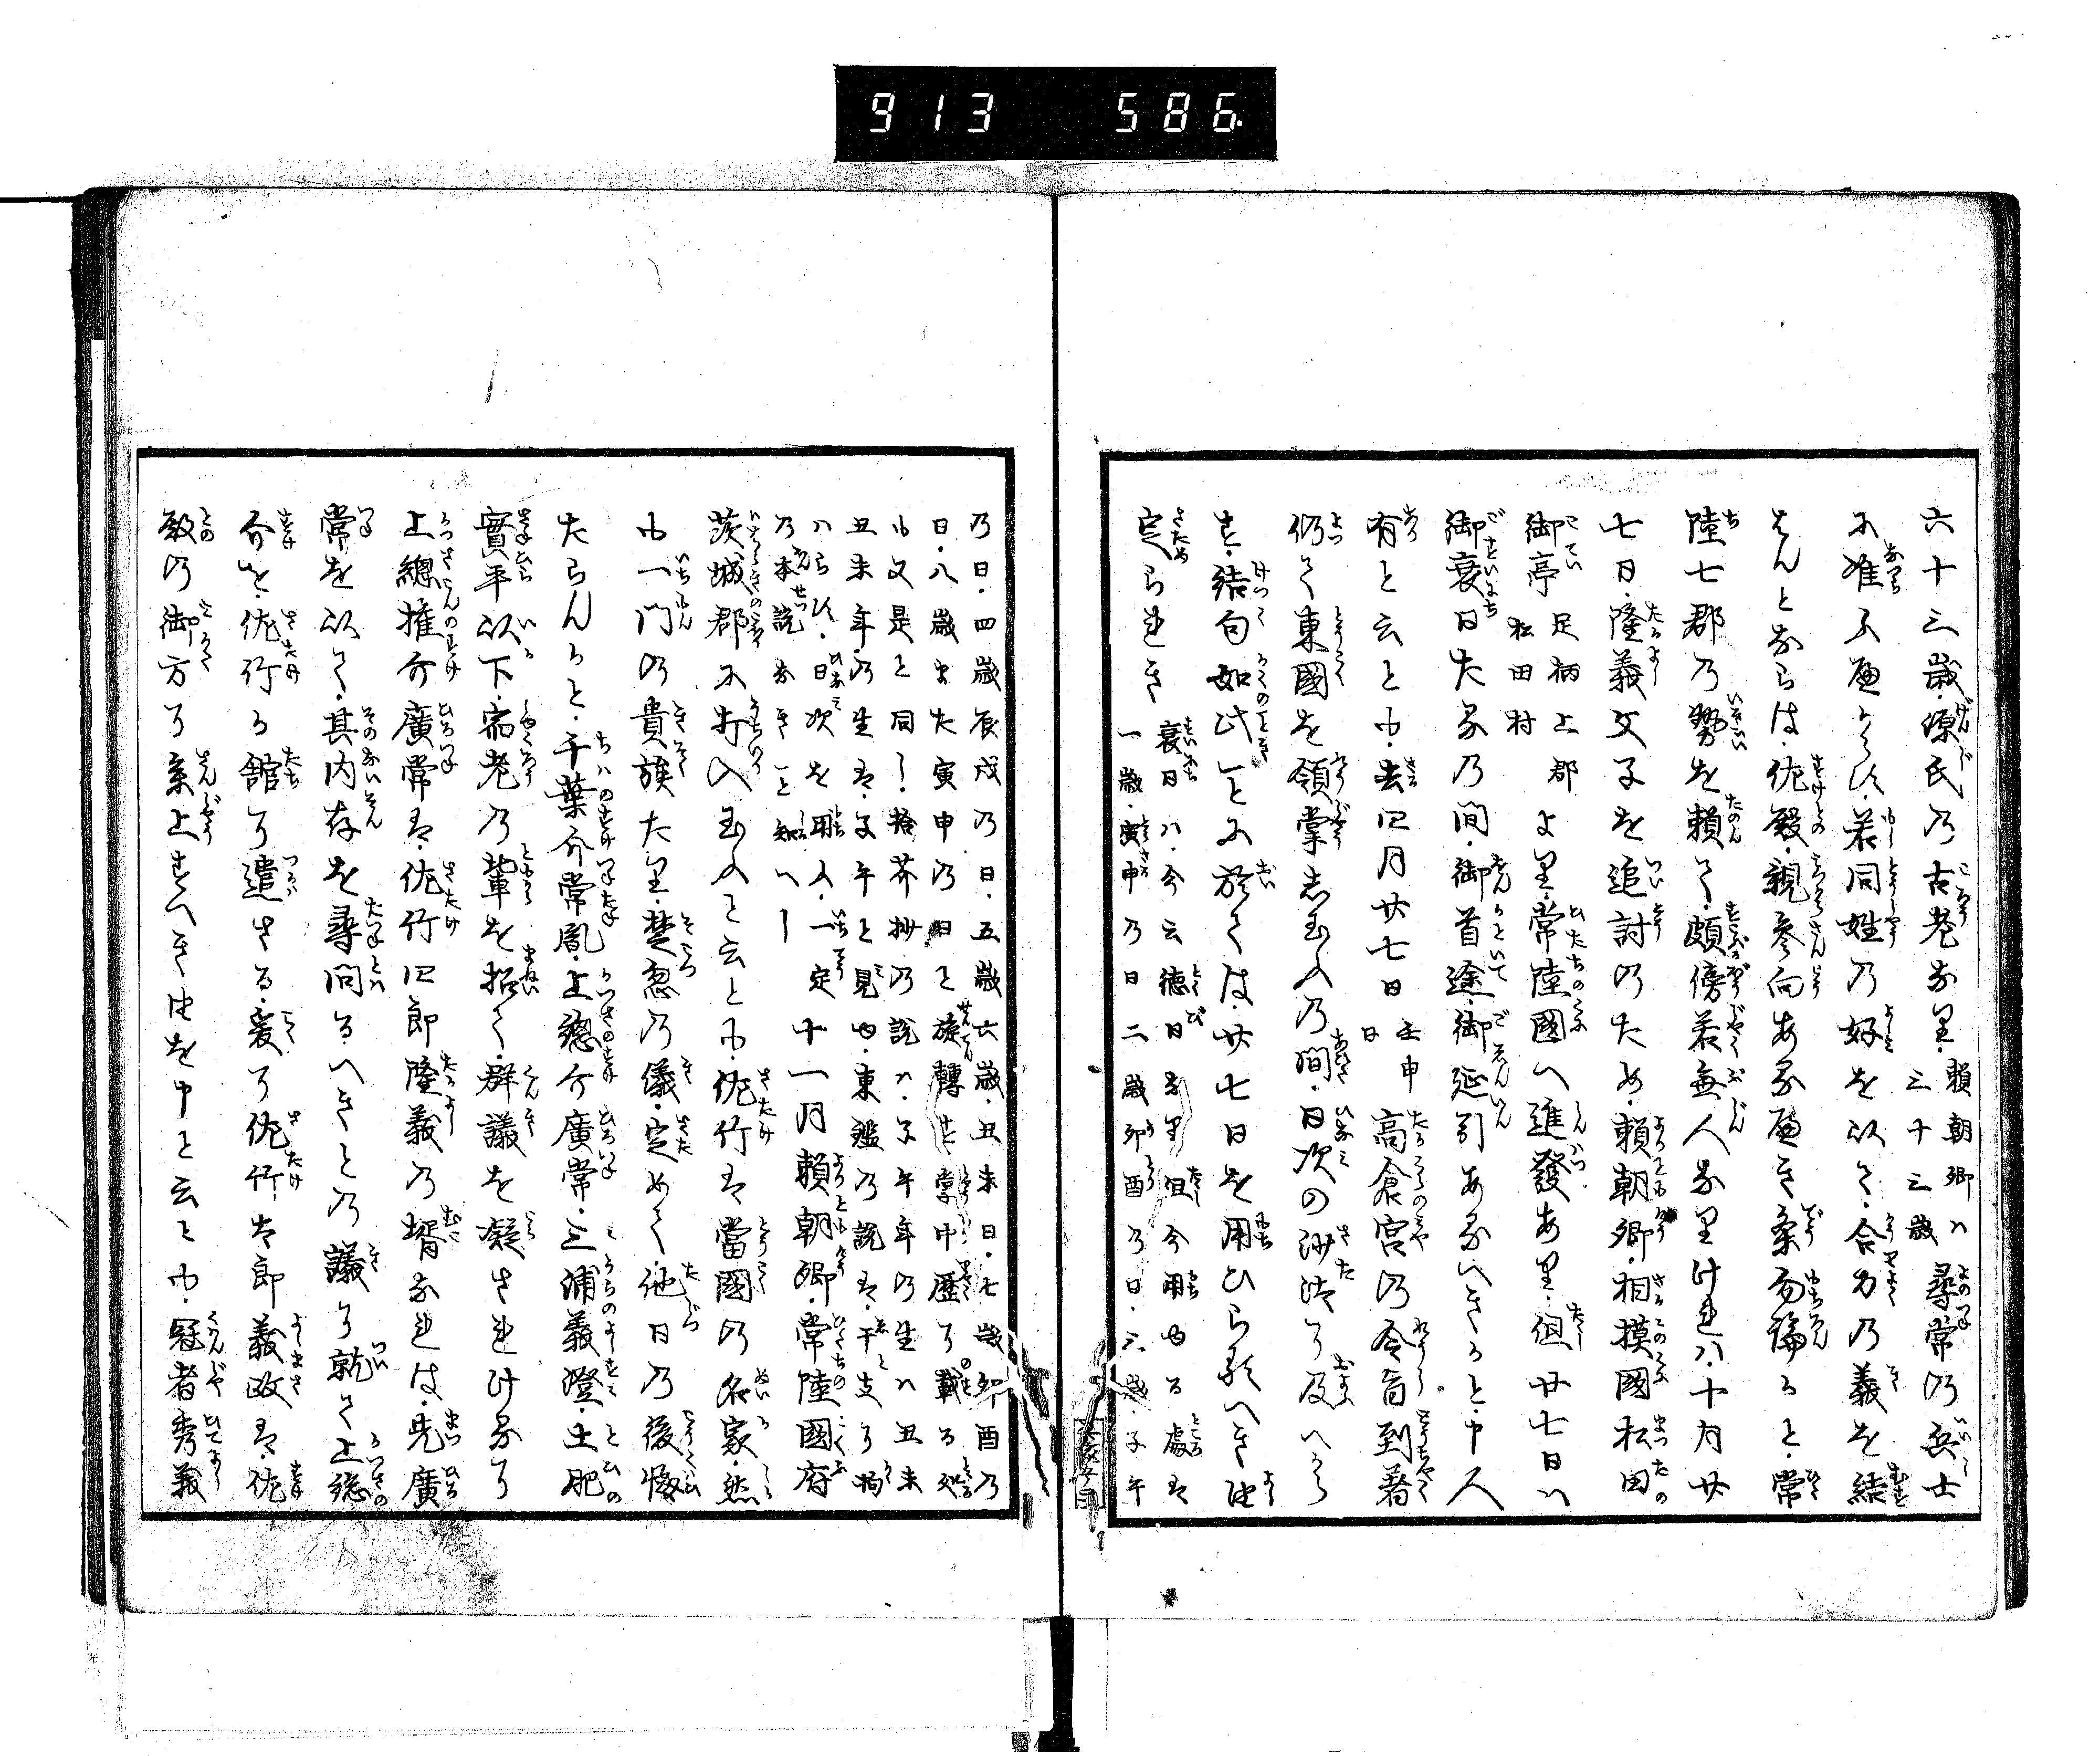 913 586
六十三歳・源氏の古老なり・頼朝卿ハ三十三歳尋常の兵士
に准ふへからす・若同姓の好を以て・合力の義を結
はんとならは・佐殿・親参向あるへき条勿論かと・常
陸七郡の勢を頼て・頗傍若無人なりけれハ・十月廿
七日・隆義父子を追討のため・頼朝卿・相摸國松田の
御亭足柄上郡松田村より・常陸國へ進發あり・但廿七日ハ
御衰日たるの間・御首途・御延引あるへきかと・中人
有と云とも・去四月廿七日壬申日高倉宮の令旨到着
仍て東國を領掌し玉ふの間・日次の沙汰に及へから
す・結句如此ことに於ては・廿七日を用ひらるへき由
定られき衰日ハ・今云徳日なり但今用ゆる處は
一歳・寅申の日二歳卯酉の日・三歳子午
の日・四歳辰戌の日・五歳六歳・丑未日・七歳卯酉の
日・八歳また寅申の日と旋轉す掌中歴に載る処
も又是と同し拾芥抄の説ハ・子午年の生ハ丑未
丑未年の生は・子午と見ゆ・東鑑の説は・干支に拘
ハらす・日次を用ふ・一定
の本説なきを知へし
十一月頼朝卿・常陸國府
茨城郡に打入玉ふと云とも・佐竹は當國の名家・然
も一門の貴族たり・楚忽の儀・定めて・他日の後悔
たらんかと・千葉介常胤・上總介廣常・三浦義澄・土肥
實平以下・宿老の輩を招て・群議を凝されけるに
上總権介廣常は・佐竹四郎隆義の壻なれは・先廣
常を以て・其内存を尋問るへきとの議に就て上総
介を・佐竹か舘に遣さる・爰に佐竹太郎義政は・佐
殿の御方に参上すへき由を申と云とも・冠者秀義